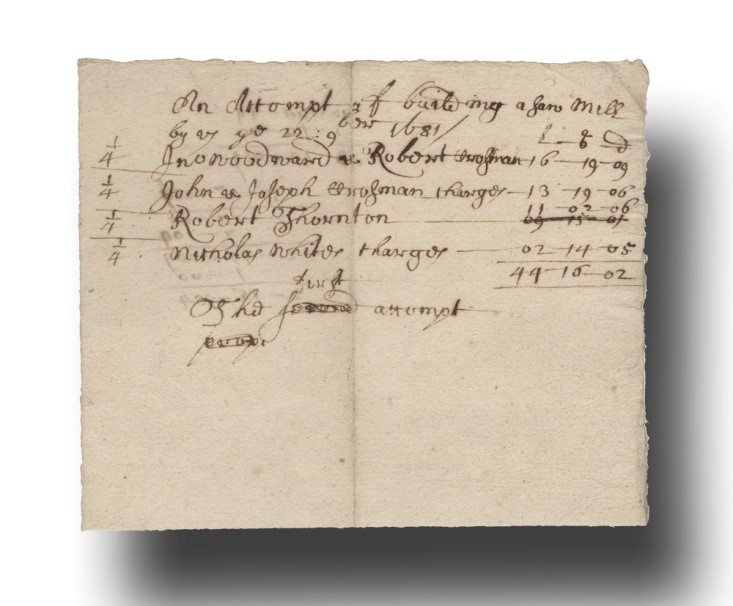 An Attempt of building a Saw Mill
by us ye 22: 9ber 1681/ £ S d
1/4 Jno Woodward & Robert Crosman 16 19 09
1/4 John & Joseph Crosman charges 13 19 06
11 02 06
1/4 Robert Thornton 09 15 01
1/4 Nicholas Whites charges 02 14 05
44 16 02
first
The second attempt